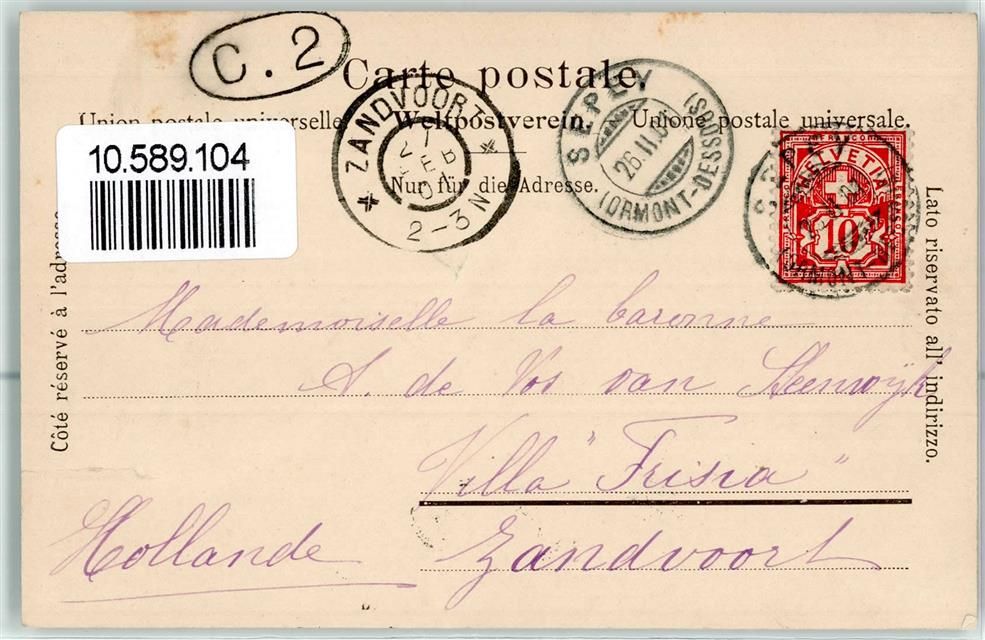 C. 2
Carte postale.
Union postale universelle. Weltpostverein. Unione postale universale.
Nur für die Adresse.
10.589.104
* ZANDVOORT *
2-3 N
SEPEY
26.II.0
(ORMONT-DESSOUS)
HELVETIA
10
Côté réservé à l'adresse.
Lato riservato all' indirizzo.
Mademoiselle la baronne
A. de Vos van Steenwijk
Villa "Frisia"
Hollande Zandvoort